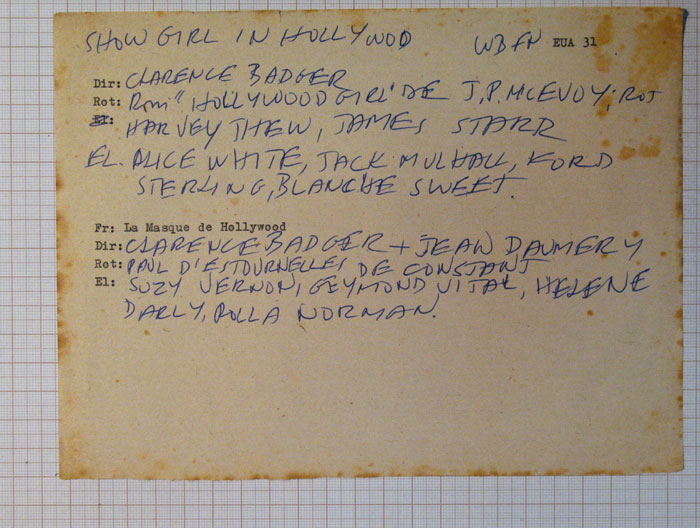 SHOW GIRL IN HOLLYWOOD WB FN EUA 31
Dir: CLARENCE BADGER
Rot: Rom "HOLLYWOOD GIRL" DE J.P. McEVOY; ROT
El: HARVEY THEW, JAMES STARR
EL. ALICE WHITE, JACK MULHALL, FORD
STERLING, BLANCHE SWEET.
Fr: La Masque de Hollywood
Dir: CLARENCE BADGER + JEAN DAUMERY
Rot: PAUL D'ESTOURNELLES DE CONSTANT
El: SUZY VERNON, GEYMOND VITAL, HELENE
DARLY, ROLLA NORMAN.